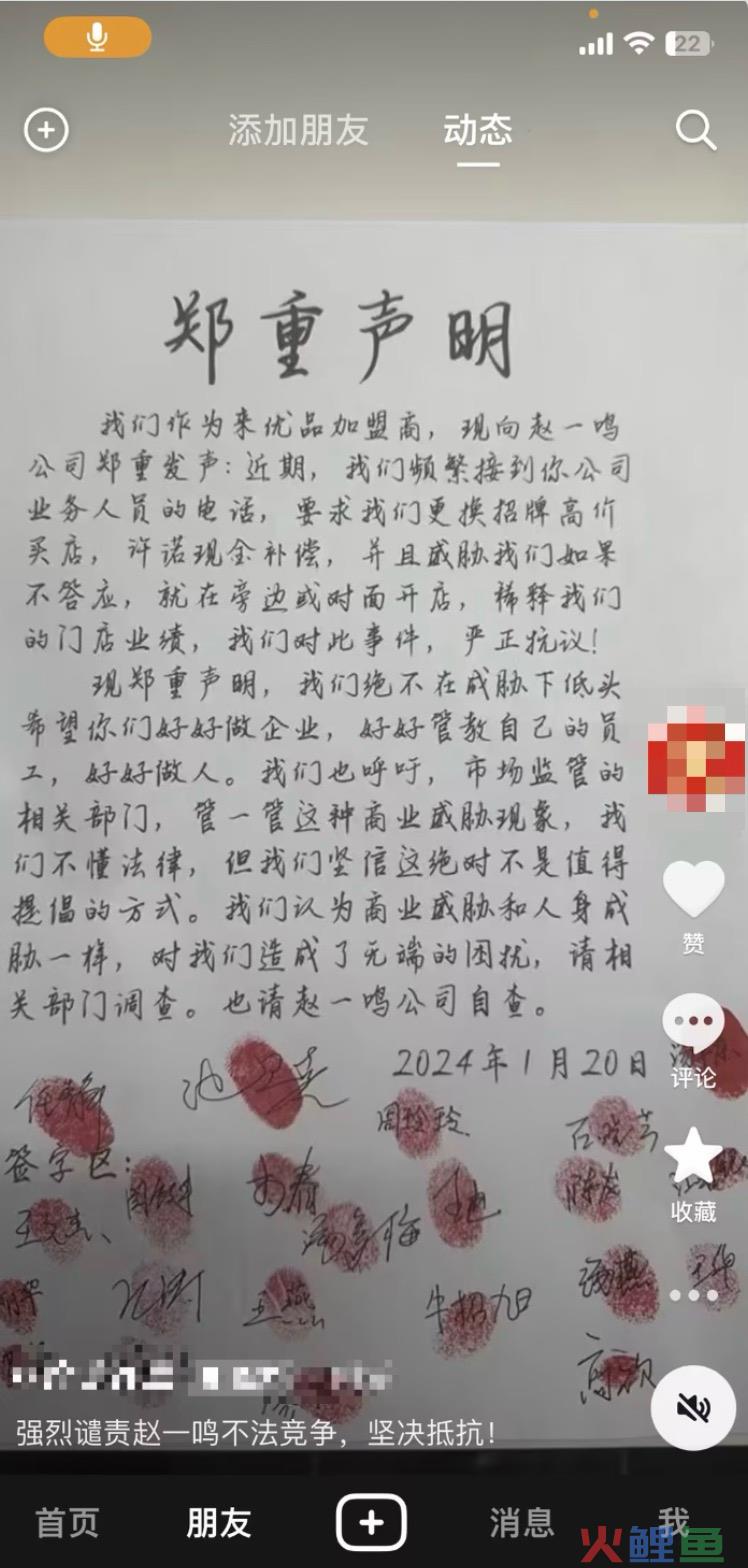 22
添加朋友 动态
郑重声明
我们作为来优品加盟商，现向赵一鸣
公司郑重发声：近期，我们频繁接到你公司
业务人员的电话，要求我们更换招牌高价
买店，许诺现金补偿，并且威胁我们如果
不答应，就在旁边或对面开店，稀释我们
的门店业绩，我们对此事件，严正抗议！
现郑重声明，我们绝不在威胁下低头
希望你们好好做企业，好好管教自己的员
工，好好做人。我们也呼吁，市场监管的
相关部门，管一管这种商业威胁现象，我
们不懂法律，但我们坚信这绝对不是值得
提倡的方式。我们认为商业威胁和人身威
胁一样，对我们造成了无端的困扰，请相
关部门调查。也请赵一鸣公司自查。
2024年1月20日
周玲玲
签字区：
王燕
牛招旭
赞
评论
收藏
强烈谴责赵一鸣不法竞争，坚决抵抗！
首页 朋友 消息 我
火鲤鱼